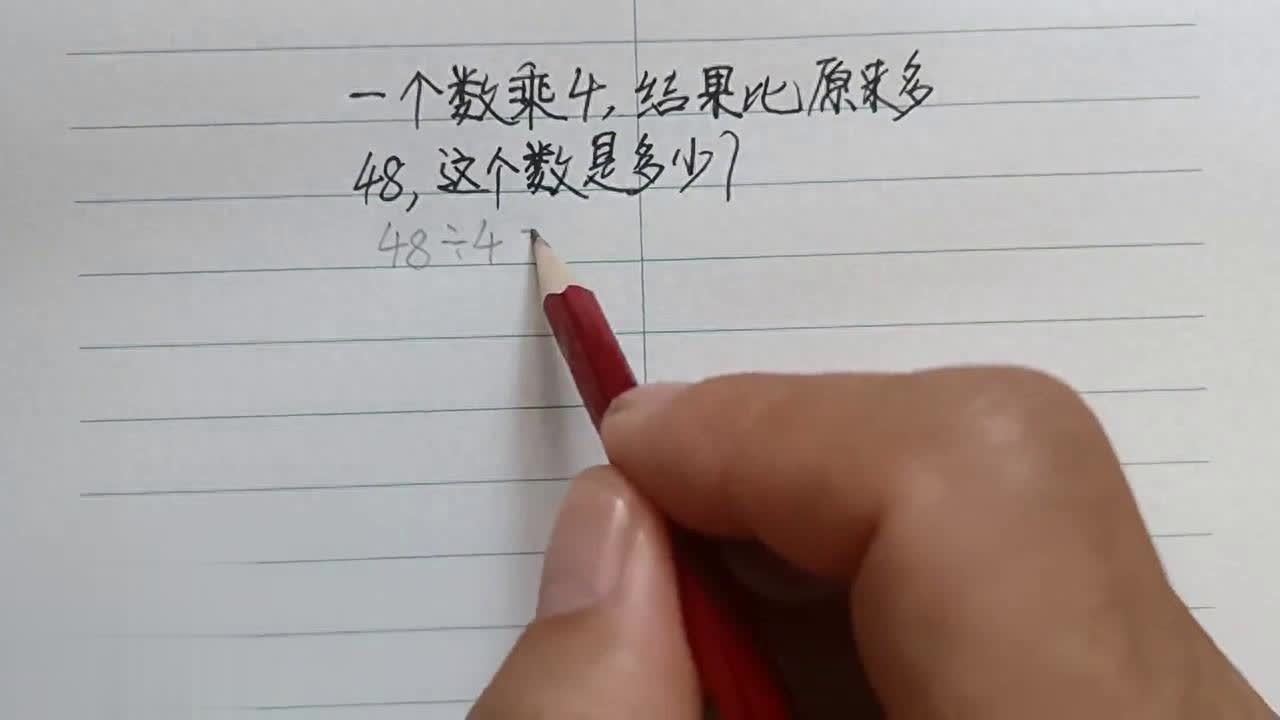 一个数乘4,结果比原来多
48,这个数是多少?
48÷4